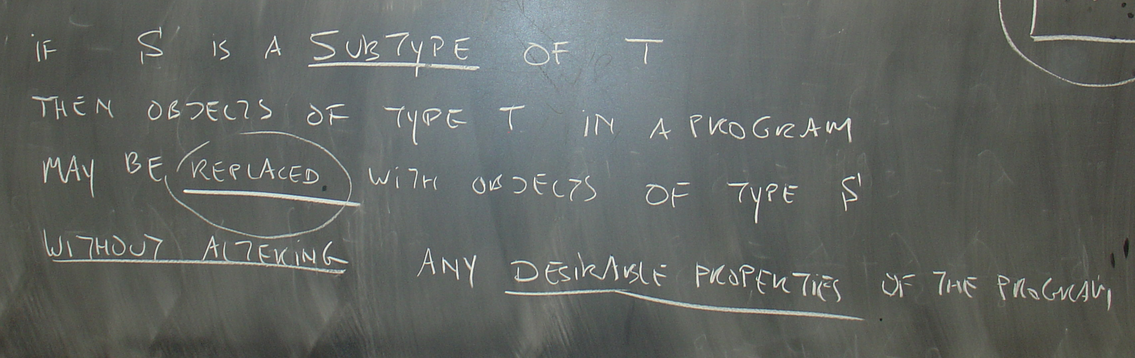 IF S IS A SUBTYPE OF T
THEN OBJECTS OF TYPE T IN A PROGRAM
MAY BE REPLACED WITH OBJECTS OF TYPE S
WITHOUT ALTERING ANY DESIRABLE PROPERTIES OF THE PROGRAM